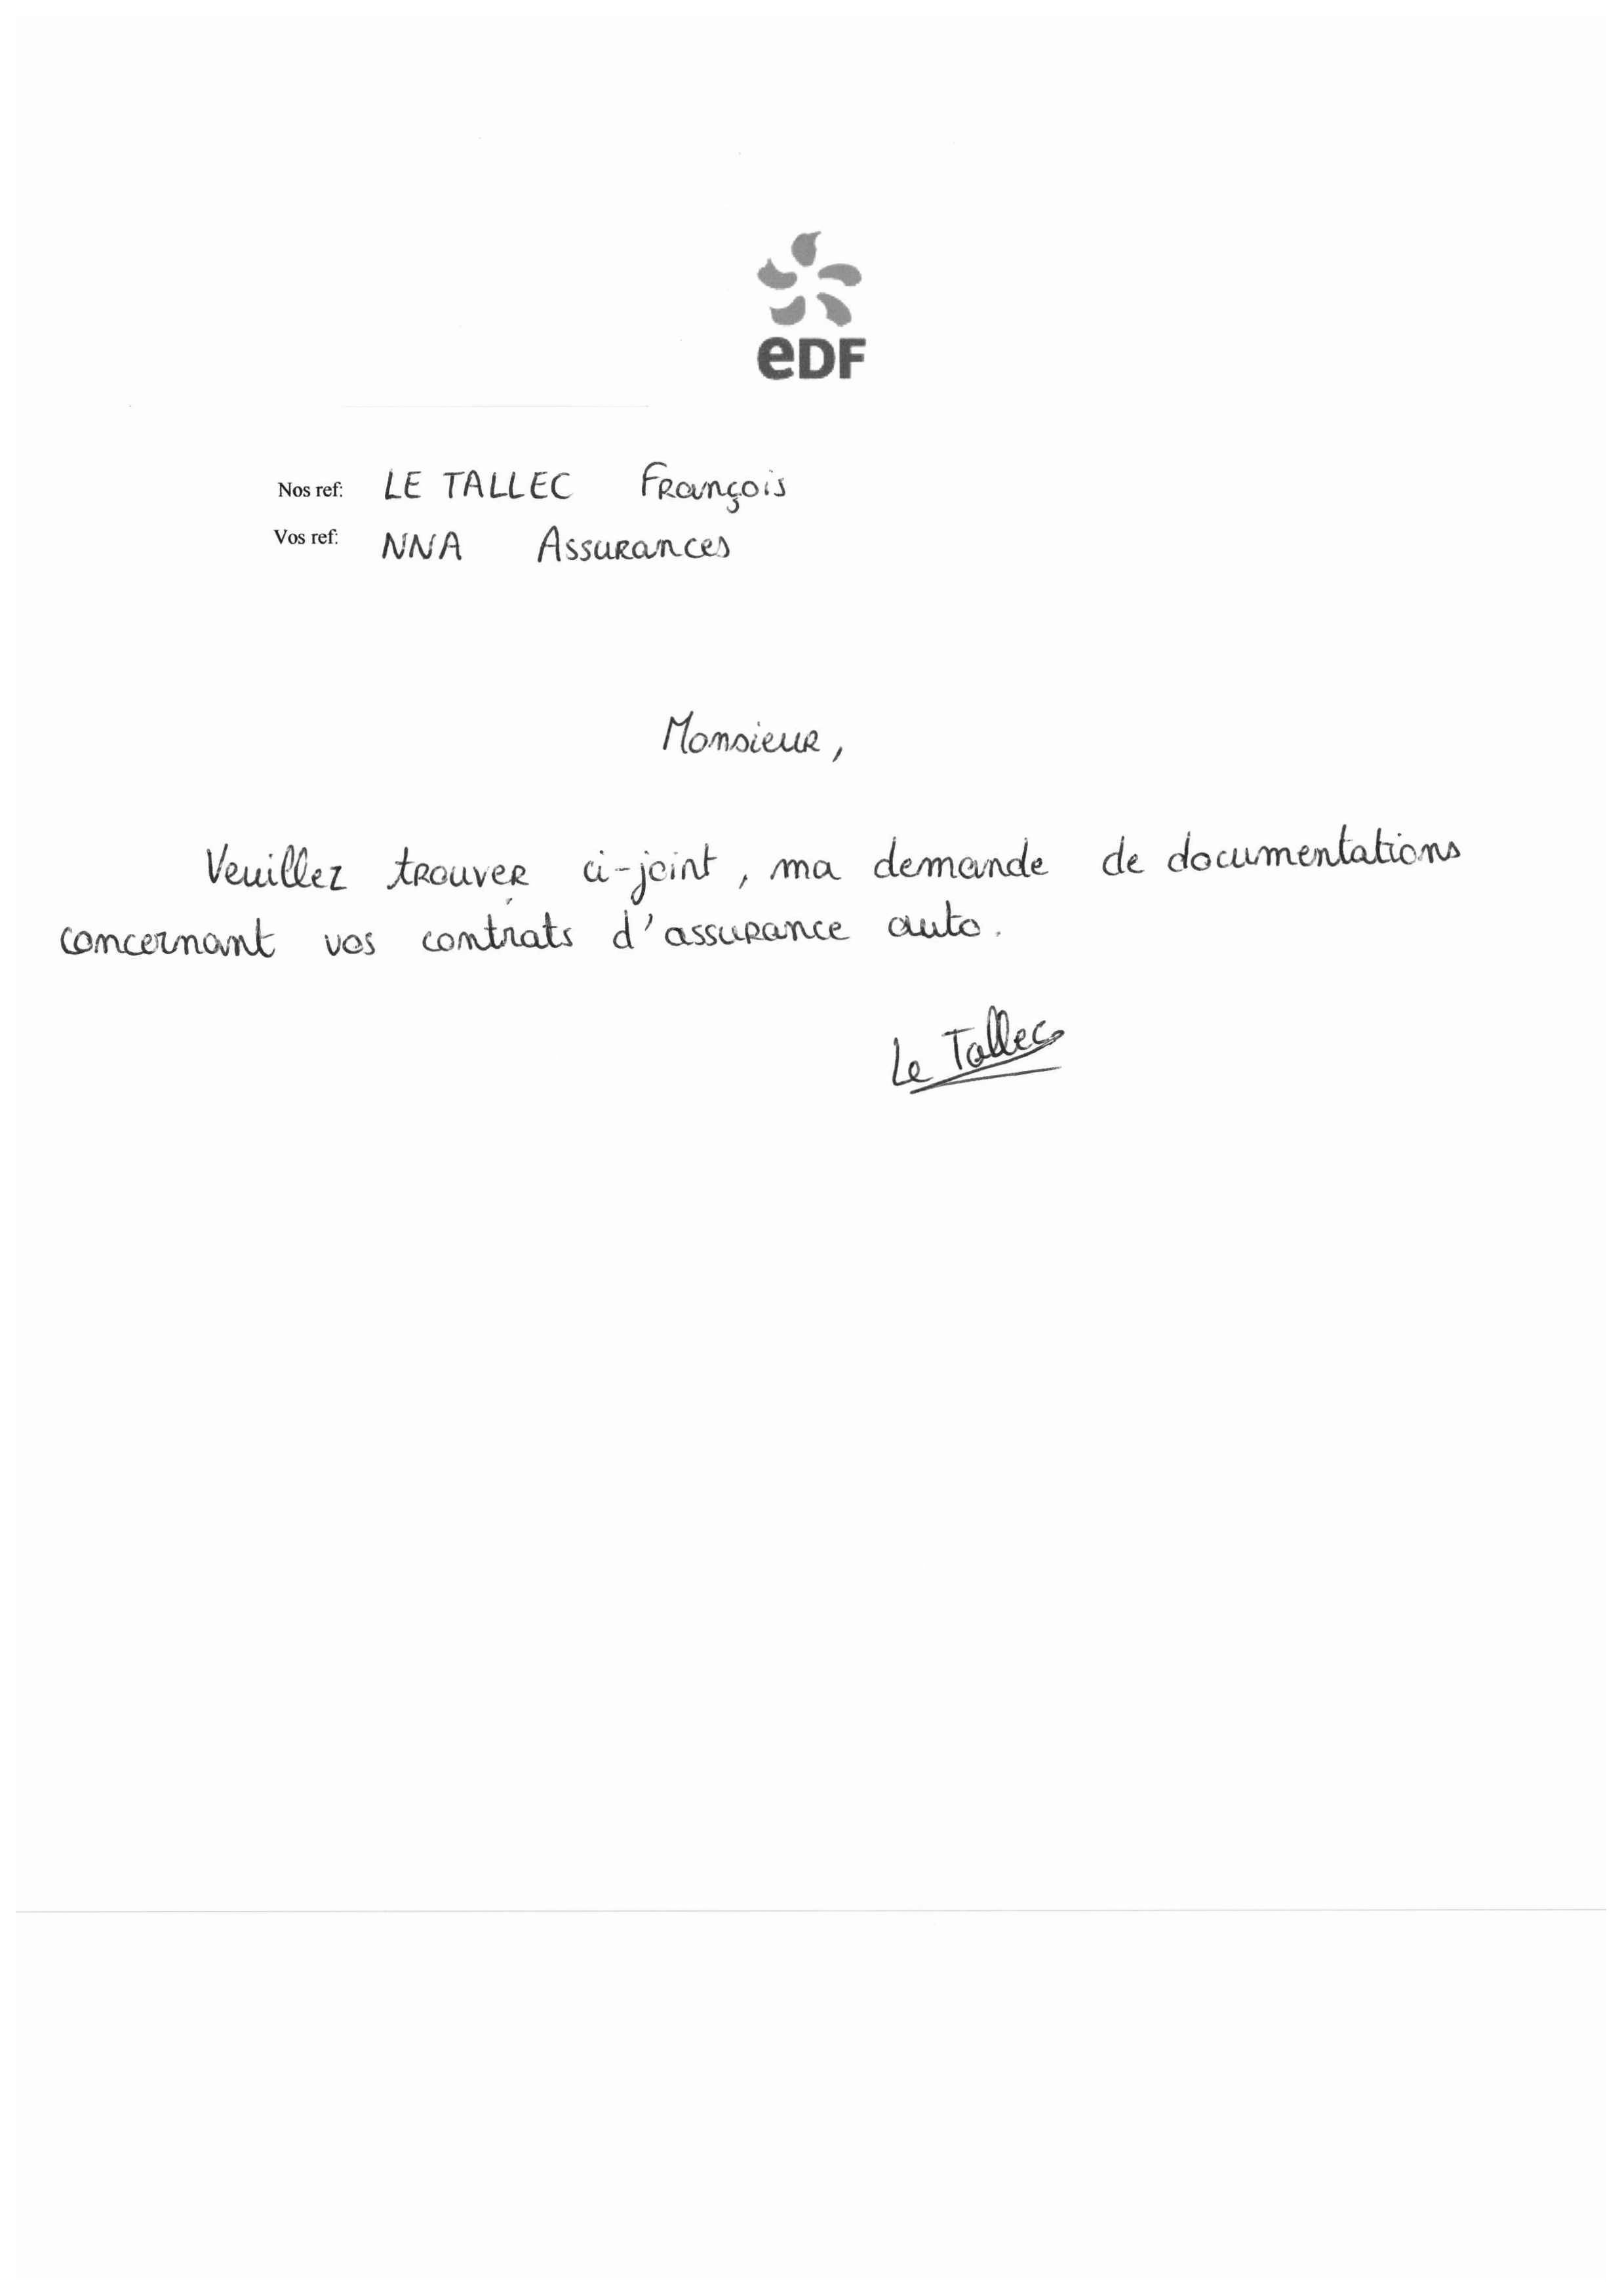 eDF
Nos ref: LE TALLEC François
Vos ref: NNA Assurances
Monsieur,
Veuillez trouver ci-joint, ma demande de documentations
concernant vos contrats d'assurance auto.
Le Tallec